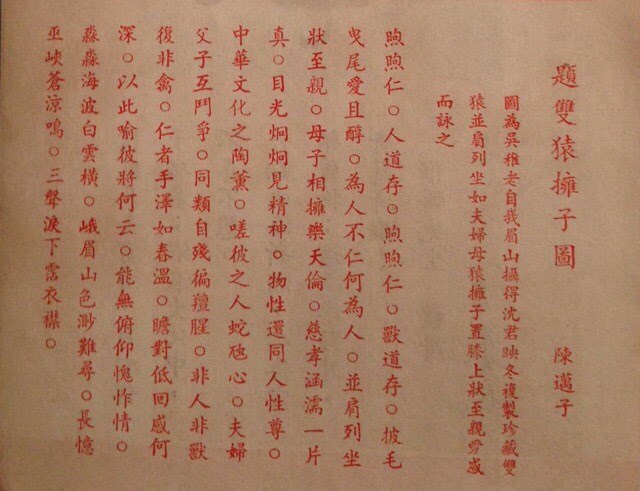 題雙猿擁子圖
陳邁子
圖為吳稚老自我眉山攝得沈君映冬複製珍藏雙
猿並肩列坐如夫婦母猿擁子置膝上狀至親爱感
而詠之
煦煦仁。人道存。煦煦仁。獸道存。披毛
曳尾愛且醇。為人不仁何為人。並肩列坐
狀至親。母子相擁樂天倫。慈孝涵濡一片
真。目光炯炯見精神。物性還同人性尊。
中華文化之陶薰。嗟彼之人蛇虺心。夫婦
父子互鬥爭。同類自殘徧羶腥。非人非獸
復非禽。仁者手澤如春溫。瞻對低回感何
深。以此喻彼將何云。能無俯仰愧怍情。
淼淼海波白雲橫。峨眉山色渺難尋。長憶
巫峽蒼涼鳴。三聲淚下霑衣襟。